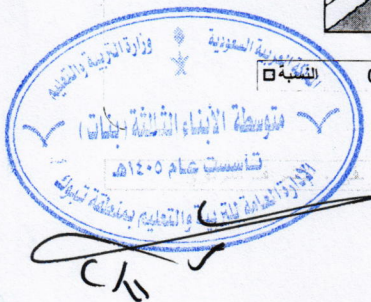 النسبة
المملكة العربية السعودية
وزارة التربية والتعليم
متوسطة الأبناء الثالثة (بنات)
تأسست عام ١٤٠٥هـ
الإدارة العامة للتربية والتعليم بمنطقة تبوك